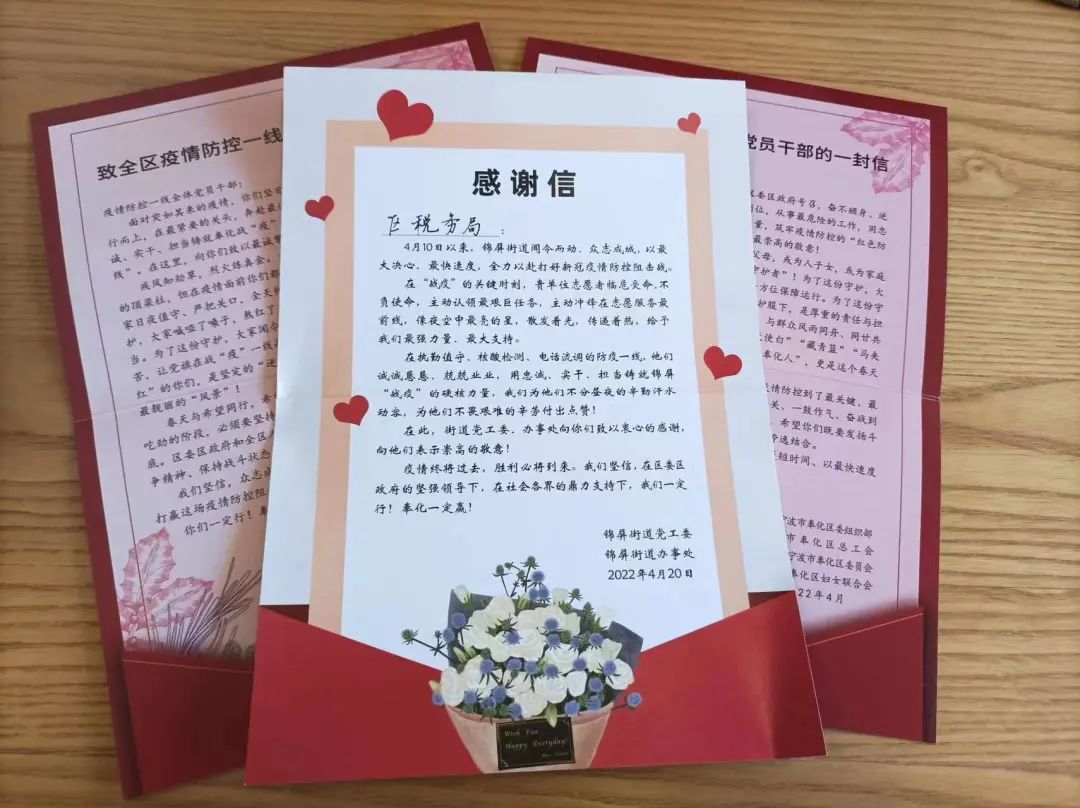 致全区疫情防控一线
疫情防控一线全体党员干部：
面对突如其来的疫情，你们坚定
行而上，在最紧要的关头，奔赴最
诚、实干、担当铸就奉化战“疫”
线”。在这里，向你们致以最诚挚
疾风知劲草，烈火炼真金。
的顶梁柱，但在疫情面前你们都
家日夜值守、严把关口，全天候
护，大家喊哑了嗓子，熬红了
当。为了这份守护，大家闻令
苦，让党旗在战“疫”一线高
红”的你们，是坚定的“逆
最靓丽的“风景”！
春天与希望同行，希
吃劲的阶段，必须要坚持
底。区委区政府和全区人
争精神、保持战斗状态
我们坚信，众志成
打赢这场疫情防控阻
你们一定行！奉
感谢信
区税务局：
4月10日以来，锦屏街道闻令而动、众志成城，以最
大决心、最快速度，全力以赴打好新冠疫情防控阻击战。
在“战疫”的关键时刻，贵单位志愿者临危受命、不
负使命，主动认领最艰巨任务，主动冲锋在志愿服务最
前线，像夜空中最亮的星，散发着光，传递着热，给予
我们最强力量、最大支持。
在执勤值守、核酸检测、电话流调的防疫一线，他们
诚诚恳恳、兢兢业业，用忠诚、实干、担当铸就锦屏
“战疫”的硬核力量，我们为他们不分昼夜的辛勤汗水
动容，为他们不畏艰难的辛劳付出点赞！
在此，街道党工委、办事处向你们致以衷心的感谢，
向他们表示崇高的敬意！
疫情终将过去，胜利必将到来。我们坚信，在区委区
政府的坚强领导下，在社会各界的鼎力支持下，我们一定
行！奉化一定赢！
锦屏街道党工委
锦屏街道办事处
2022年4月20日
Wish You
Happy Everyday!
党员干部的一封信
区委区政府号召，奋不顾身、逆
岗位，从事最危险的工作，用忠
量，筑牢疫情防控的“红色防
最崇高的敬意！
父母，或为人子女，或为家庭
守护者”！为了这份守护，大
方位保障运行。为了这份守
护服下，是厚重的责任与担
、与群众风雨同舟、同甘共
使白”“藏青蓝”“马夫
奉化人”，更是这个春天
疫情防控到了最关键、最
关、一鼓作气、奋战到
，希望你们既要发扬斗
劳逸结合。
最短时间、以最快速度
宁波市奉化区委组织部
市奉化区总工会
宁波市奉化区委员会
奉化区妇女联合会
22年4月